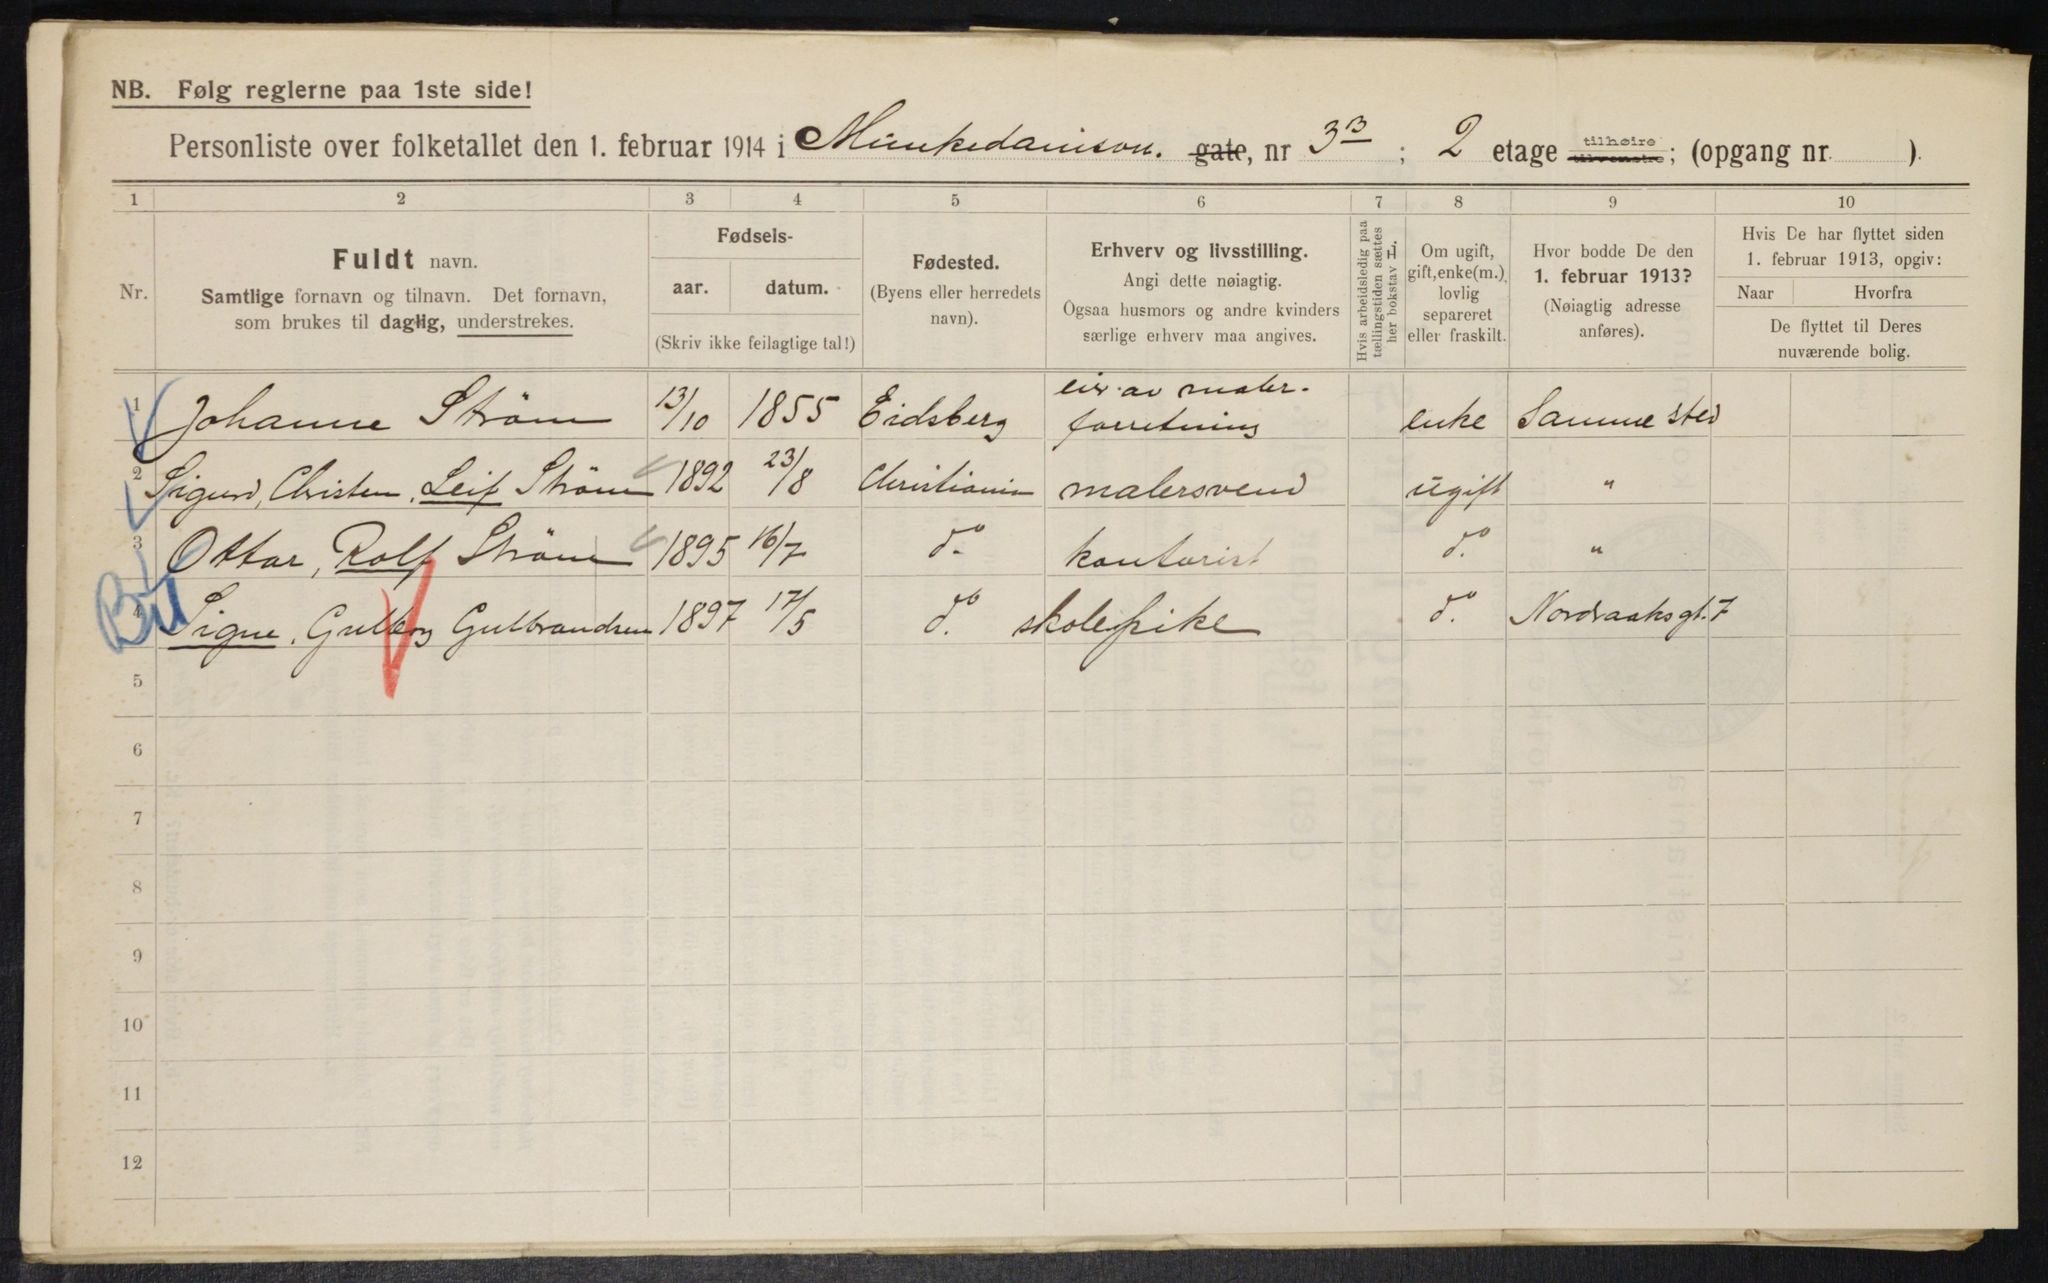 NB. Følg reglerne paa 1ste side!
Personliste over folketallet den 1. februar 1914 i Munkedamsvn. gate, nr 3B ; 2 etage tilhøire tilvenstre; (opgang nr. ).
1 2 3 4 5 6 7 8 9 10
Nr.
Fuldt navn.
Samtlige fornavn og tilnavn. Det fornavn,
som brukes til daglig, understrekes.
Fødsels-
aar. datum.
(Skriv ikke feilagtige tal!)
Fødested.
(Byens eller herredets
navn).
Erhverv og livsstilling.
Angi dette nøiagtig.
Ogsaa husmors og andre kvinders
særlige erhverv maa angives.
Hvis arbeidsledig paa
tællingstiden sættes
her bokstav L.
Om ugift,
gift, enke(m.),
lovlig
separeret
eller fraskilt.
Hvor bodde De den
1. februar 1913?
(Nøiagtig adresse
anføres).
Hvis De har flyttet siden
1. februar 1913, opgiv:
Naar Hvorfra
De flyttet til Deres
nuværende bolig.
1 Johanne Strøm 13/10 1855 Eidsberg eier av maler-
forretning enke Samme sted
2 Sigurd, Christen, Leif Strøm 1892 23/8 Christiania malersvend ugift "
3 Ottar, Rolf Strøm 1895 16/7 do. kontorist do. "
4 Signe, Gulborg Gulbrandsen 1897 17/5 do. skolepike do. Nordraaksgt. 7
5
6
7
8
9
10
11
12